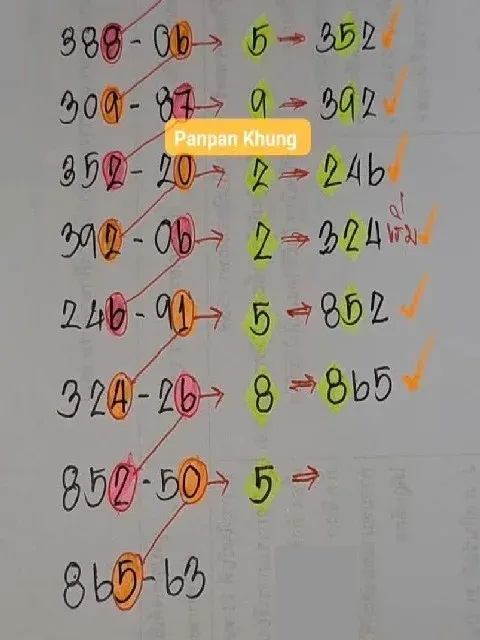 388 - 06 → 5 → 352 ✓
309 - 87 → 9 → 392 ✓
Panpan Khung
352 - 20 → 2 → 246 ✓
392 - 06 → 2 → 324 เริ่ม ✓
246 - 91 → 5 → 852 ✓
324 - 26 → 8 → 865 ✓
852 - 50 → 5 →
865 - 63